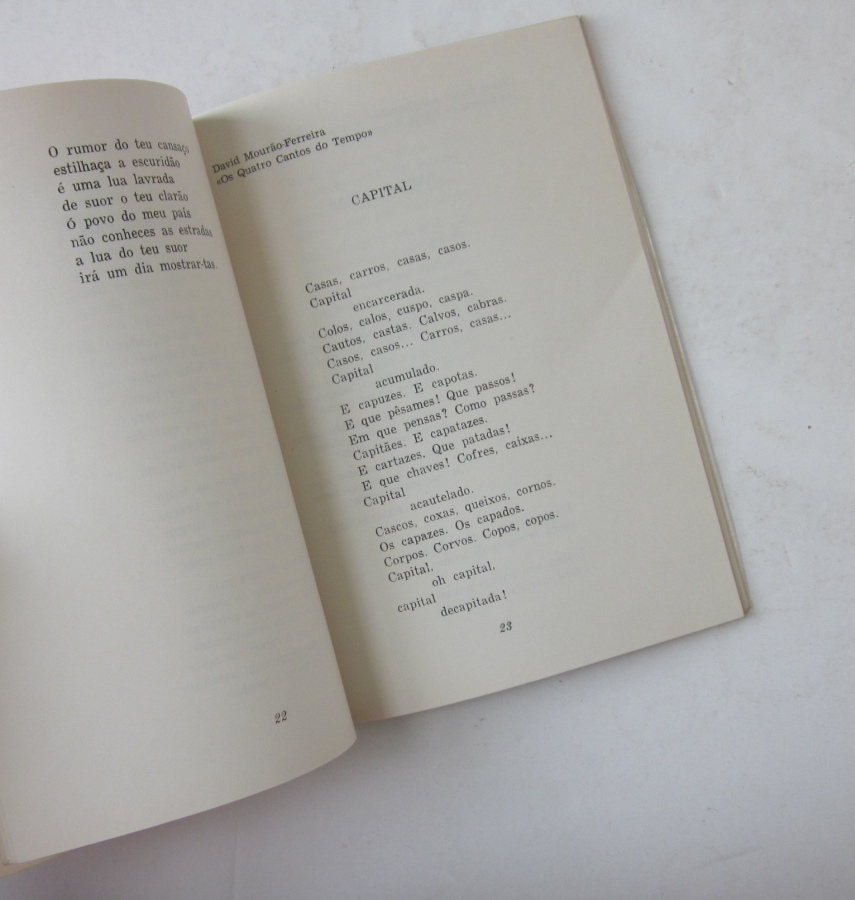 O rumor do teu cansaço
estilhaça a escuridão
é uma lua lavrada
de suor o teu clarão
Ó povo do meu país
não conheces as estradas
a lua do teu suor
irá um dia mostrar-tas.
22
David Mourão-Ferreira
«Os Quatro Cantos do Tempo»
CAPITAL
Casas, carros, casas, casos.
Capital
encarcerada.
Colos, calos, cuspo, caspa.
Cautos, castas. Calvos, cabras.
Casos, casos... Carros, casas...
Capital
acumulado.
E capuzes. E capotas.
E que pêsames! Que passos!
Em que pensas? Como passas?
Capitães. E capatazes.
E cartazes. Que patadas!
E que chaves! Cofres, caixas...
Capital
acautelado.
Cascos, coxas, queixos, cornos.
Os capazes. Os capados.
Corpos. Corvos. Copos, copos.
Capital,
oh capital,
capital
decapitada!
23